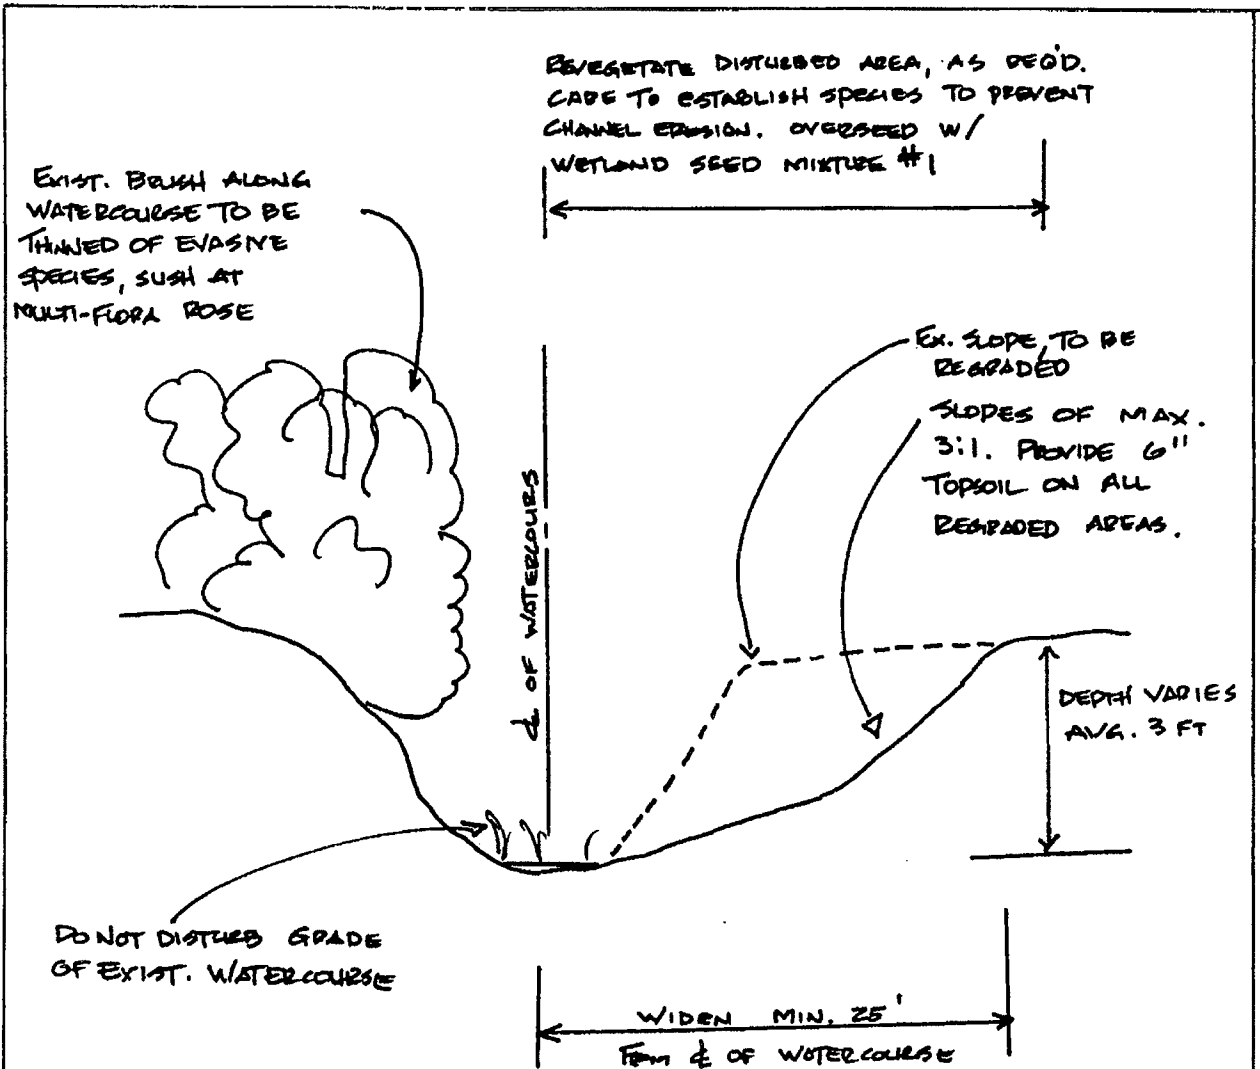 REVEGETATE DISTURBED AREA, AS REQ'D.
CARE TO ESTABLISH SPECIES TO PREVENT
CHANNEL EROSION. OVERSEED W/
WETLAND SEED MIXTURE #1
EXIST. BRUSH ALONG
WATERCOURSE TO BE
THINNED OF EVASIVE
SPECIES, SUSH AT
MULTI-FLORA ROSE
EX. SLOPE, TO BE
REGRADED
SLOPES OF MAX.
3:1. PROVIDE 6"
TOPSOIL ON ALL
REGRADED AREAS.
℄ OF WATERCOURS
DEPTH VARIES
AVG. 3 FT
DO NOT DISTURB GRADE
OF EXIST. WATERCOURSE
WIDEN MIN. 25'
FROM ℄ OF WATERCOURSE